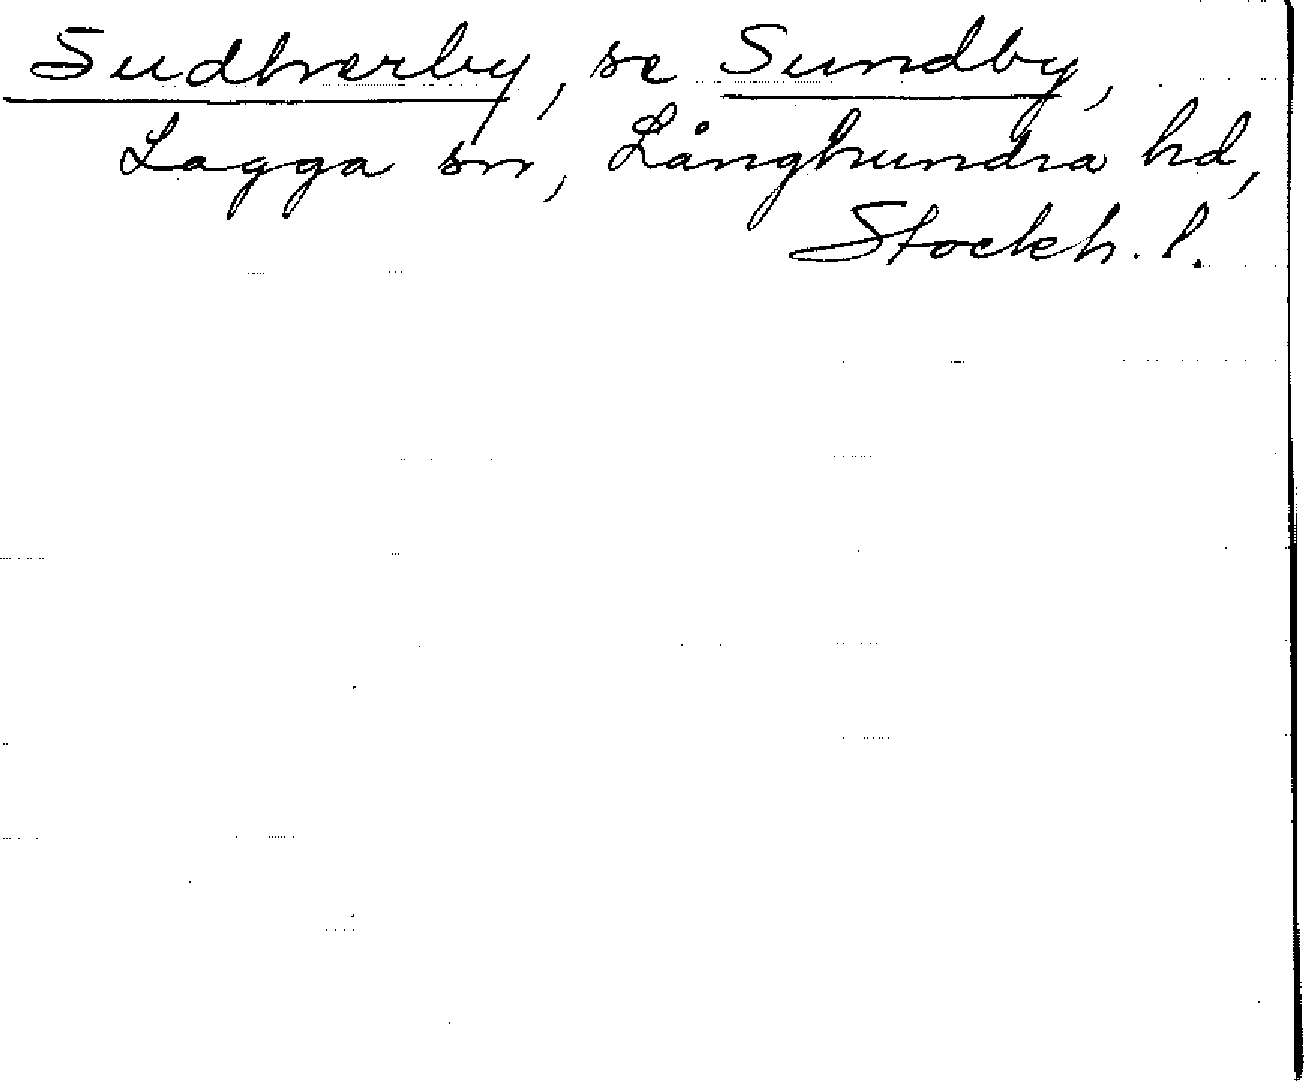 Sudhverby, se Sundby,
Lagga sn, Långhundra hd,
Stockh. l.